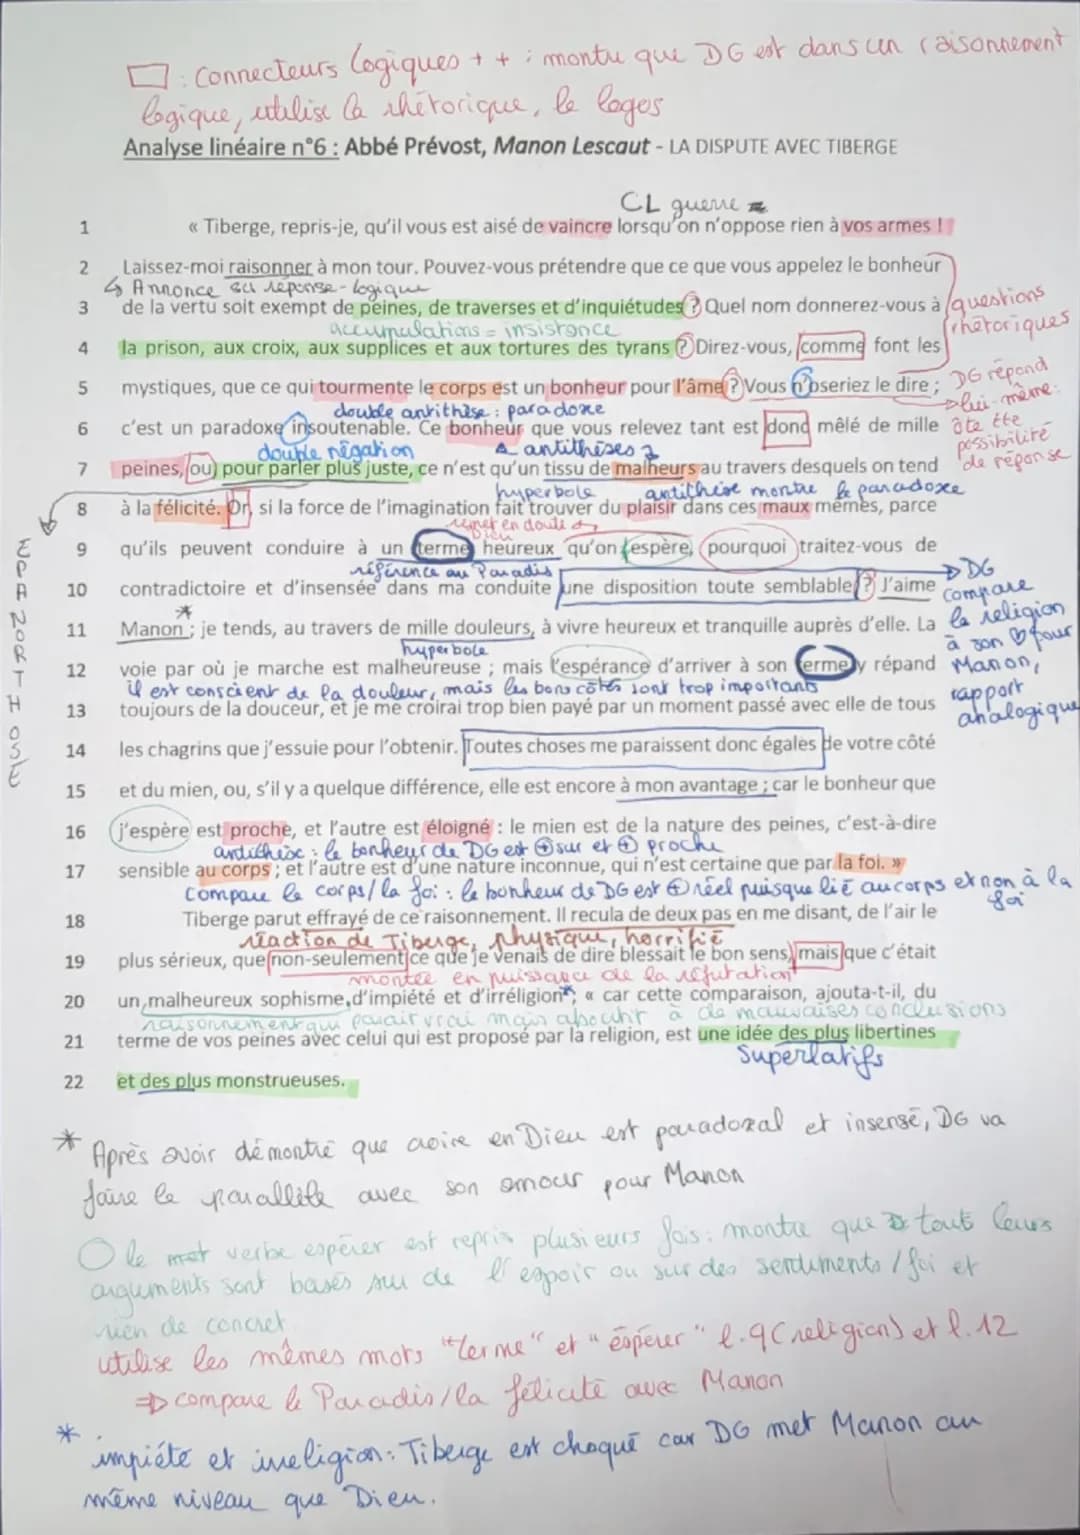 □ : Connecteurs logiques + + : montre que DG est dans un raisonnement
logique, utilise la rhétorique, le logos
Analyse linéaire n°6 : Abbé Prévost, Manon Lescaut - LA DISPUTE AVEC TIBERGE
CL guerre
1 « Tiberge, repris-je, qu'il vous est aisé de vaincre lorsqu'on n'oppose rien à vos armes !
2 Laissez-moi raisonner à mon tour. Pouvez-vous prétendre que ce que vous appelez le bonheur
↳ Annonce sa réponse - logique
3 de la vertu soit exempt de peines, de traverses et d'inquiétudes ? Quel nom donnerez-vous à
questions rhétoriques
accumulations = insistance
4 la prison, aux croix, aux supplices et aux tortures des tyrans ? Direz-vous, comme font les
5 mystiques, que ce qui tourmente le corps est un bonheur pour l'âme ? Vous n'oseriez le dire ;
DG répond
→ lui-même :
ôte tte
possibilité
de réponse
double antithèse : paradoxe
6 c'est un paradoxe insoutenable. Ce bonheur que vous relevez tant est donc mêlé de mille
double négation
antithèses
7 peines, ou pour parler plus juste, ce n'est qu'un tissu de malheurs au travers desquels on tend
hyperbole
antithèse montre le paradoxe
8 à la félicité. Or, si la force de l'imagination fait trouver du plaisir dans ces maux mêmes, parce
EPANORTHOSE
remet en doute Dieu
9 qu'ils peuvent conduire à un terme heureux qu'on espère, pourquoi traitez-vous de
référence au Paradis
10 contradictoire et d'insensée dans ma conduite une disposition toute semblable ? J'aime
→ DG
compare
la religion
à son ♡ pour
Manon,
rapport
analogique
*
11 Manon ; je tends, au travers de mille douleurs, à vivre heureux et tranquille auprès d'elle. La
hyperbole
12 voie par où je marche est malheureuse ; mais l'espérance d'arriver à son terme y répand
il est conscient de la douleur, mais les bons côtés sont trop importants
13 toujours de la douceur, et je me croirai trop bien payé par un moment passé avec elle de tous
14 les chagrins que j'essuie pour l'obtenir. Toutes choses me paraissent donc égales de votre côté
15 et du mien, ou, s'il y a quelque différence, elle est encore à mon avantage ; car le bonheur que
16 j'espère est proche, et l'autre est éloigné : le mien est de la nature des peines, c'est-à-dire
antithèse : le bonheur de DG est ⊕ sur et ⊕ proche
17 sensible au corps ; et l'autre est d'une nature inconnue, qui n'est certaine que par la foi. »
Compare le corps/la foi : le bonheur de DG est ⊕ réel puisque lié au corps et non à la foi
18 Tiberge parut effrayé de ce raisonnement. Il recula de deux pas en me disant, de l'air le
réaction de Tiberge, physique, horrifié
19 plus sérieux, que non-seulement ce que je venais de dire blessait le bon sens, mais que c'était
montée en puissance de la réfutation
20 un malheureux sophisme d'impiété et d'irréligion*, « car cette comparaison, ajouta-t-il, du
raisonnement qui parait vrai mais aboutit à de mauvaises conclusions
21 terme de vos peines avec celui qui est proposé par la religion, est une idée des plus libertines
Superlatifs
22 et des plus monstrueuses.
* Après avoir démontré que croire en Dieu est paradoxal et insensé, DG va
faire le parallèle avec son amour pour Manon
○ le verbe espérer est repris plusieurs fois : montre que tout leurs
arguments sont basés sur de l'espoir ou sur des sentiments / foi et
rien de concret
utilise les mêmes mots "terme" et "espérer" l.9 (religion) et l.12
⇒ compare le Paradis/la félicité avec Manon
* impiété et irreligion : Tiberge est choqué car DG met Manon au
même niveau que Dieu.